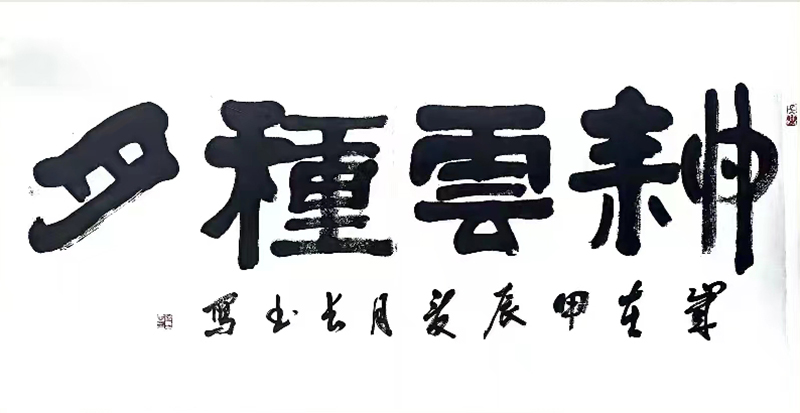 耕雲種月
歲在甲辰夏月长玉寫